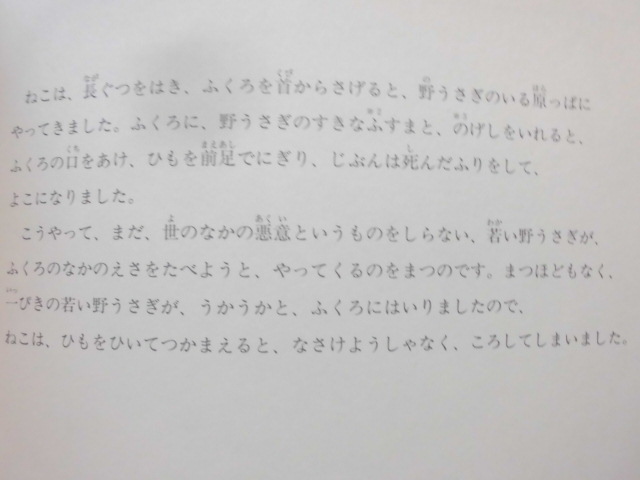 ねこは、長ぐつをはき、ふくろを首からさげると、野うさぎのいる原っぱに
やってきました。ふくろに、野うさぎのすきなふすまと、のげしをいれると、
ふくろの口をあけ、ひもを前足でにぎり、じぶんは死んだふりをして、
よこになりました。
こうやって、まだ、世のなかの悪意というものをしらない、若い野うさぎが、
ふくろのなかのえさをたべようと、やってくるのをまつのです。まつほどもなく、
一ぴきの若い野うさぎが、うかうかと、ふくろにはいりましたので、
ねこは、ひもをひいてつかまえると、なさけようしゃなく、ころしてしまいました。